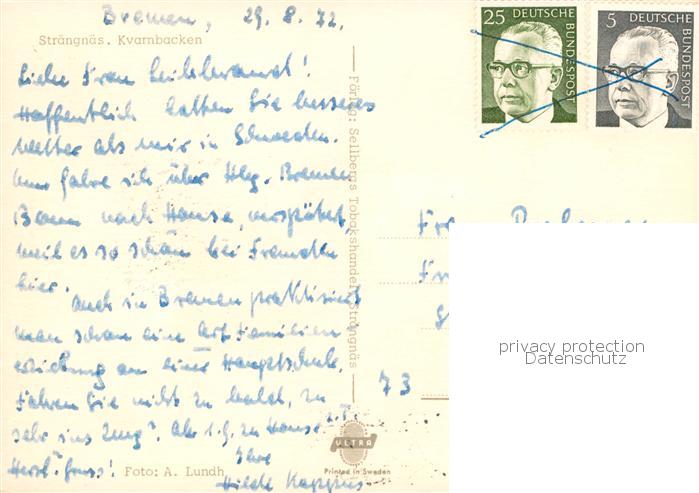 Bremen, 29.8.72.
Strängnäs. Kvarnbacken
25 DEUTSCHE BUNDESPOST
5 DEUTSCHE BUNDESPOST
Liebe Frau
Hoffentlich hatten Sie besseres
Wetter als wir in Schweden.
Nun fahre ich über Hbg. Bremen
Bonn nach Hause, verspätet,
weil es so schön bei Fremden
hier.
Auch in Bremen praktiziert
man schon eine Art Familien
erziehung an einer Hauptschule.
Fahren Sie nicht zu bald, zu
sehr ins Zeug! Ab 1.9. zu Hause
Herzl. Gruss! Ihre
Hilde Kappus
Foto: A. Lundh
Förlag: Sellbergs Tobakshandel, Strängnäs
ULTRA
Printed in Sweden
73
privacy protection
Datenschutz